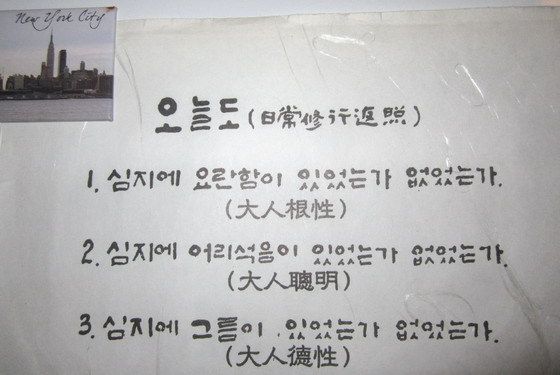 New York City
오늘도 (日常修行返照)
1. 심지에 요란함이 있었는가 없었는가.
(大人根性)
2. 심지에 어리석음이 있었는가 없었는가.
(大人聰明)
3. 심지에 그름이 있었는가 없었는가.
(大人德性)